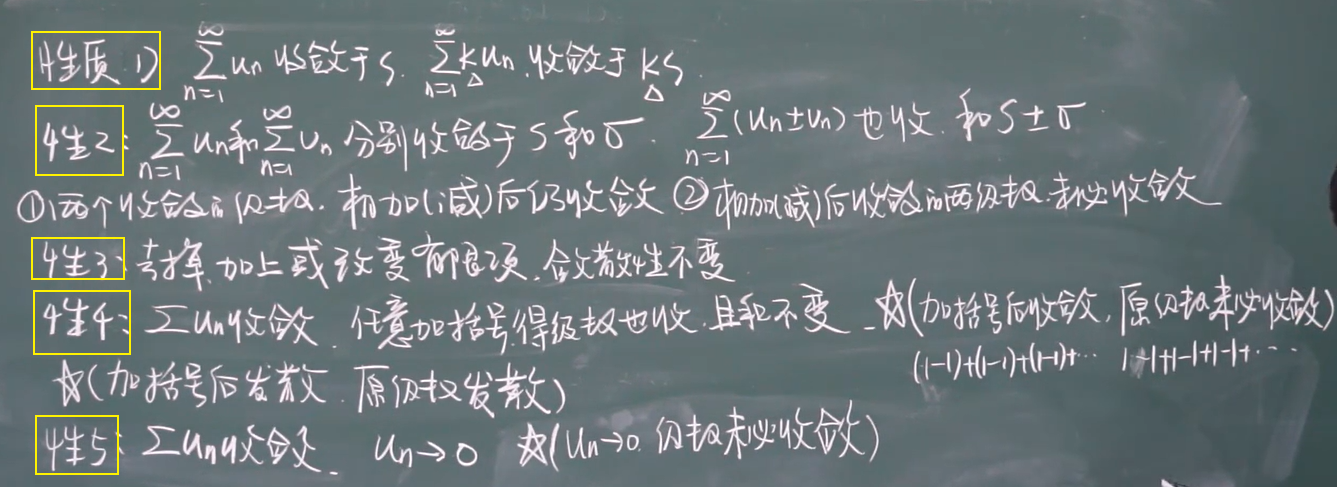 性质 1) ∑_{n=1}^{∞} un 收敛于 S. ∑_{n=1}^{∞} kun 收敛于 kS.
性2: ∑_{n=1}^{∞} un和∑_{n=1}^{∞} υn 分别收敛于 S 和 σ. ∑_{n=1}^{∞} (un±υn) 也收. 和 S±σ
①两个收敛的级数.相加(减)后仍收敛 ②相加(减)后收敛的两级数.未必收敛
性3:去掉.加上或改变有限项.敛散性不变
性4: ∑un收敛.任意加括号得级数也收.且和不变 ☆(加括号后收敛,原级数未必收敛)
(1-1)+(1-1)+(1-1)+… 1-1+1-1+1-1+…
☆(加括号后发散.原级数发散)
性5: ∑un收敛. un→0 ☆(un→0.级数未必收敛)